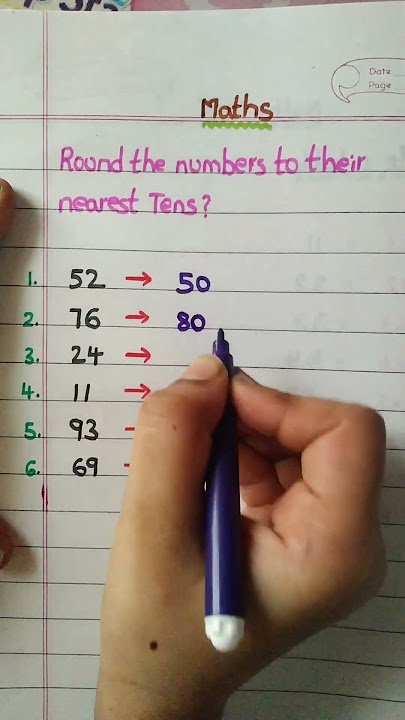 Date
Page
Maths
Round the numbers to their
nearest Tens?
1. 52 → 50
2. 76 → 80
3. 24 →
4. 11 →
5. 93 -
6. 69 -